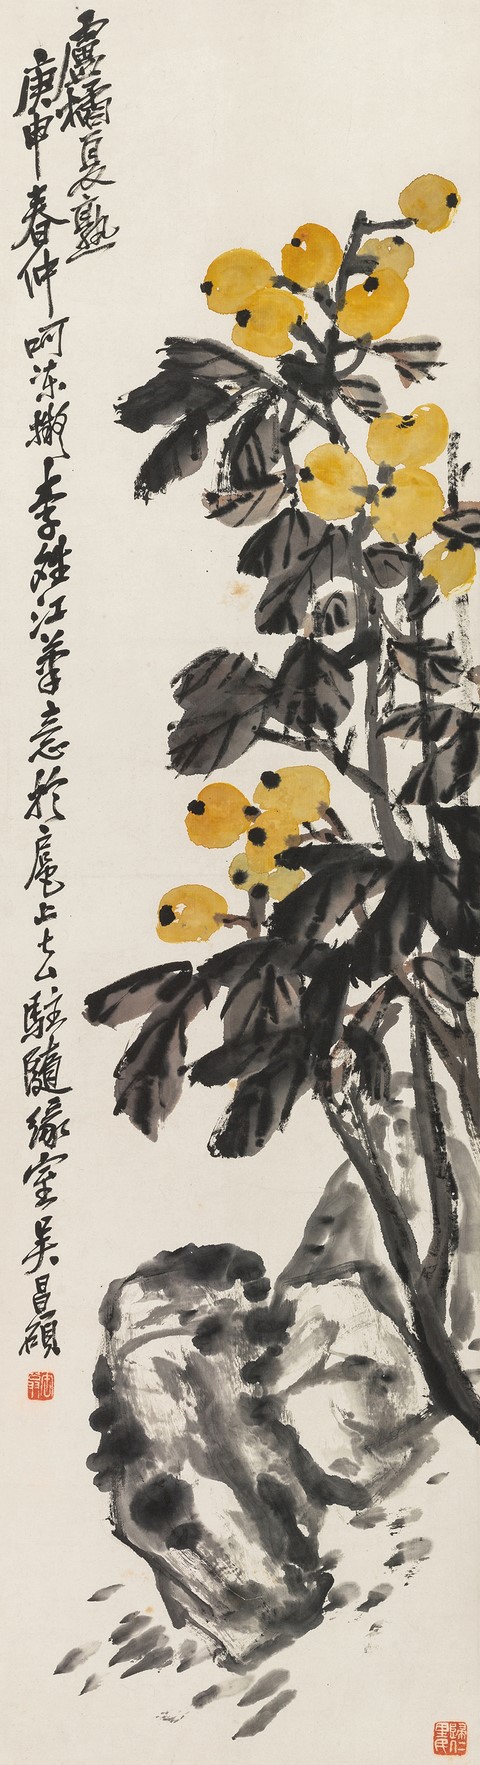 盧橘夏熟
庚申春仲呵凍擬李晴江筆意於扈上去駐隨緣室吳昌碩
歸仁里民